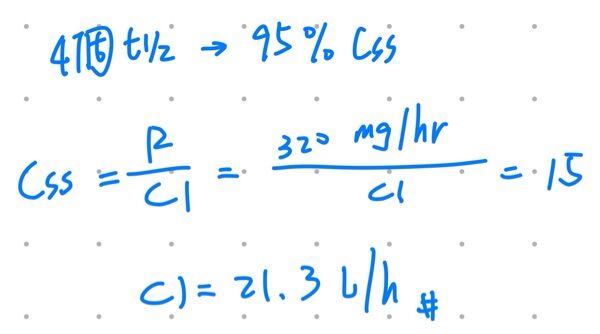 4個 t1/2 → 95% Css
Css = R/Cl = 320 mg/hr / Cl = 15
Cl = 21.3 L/h #